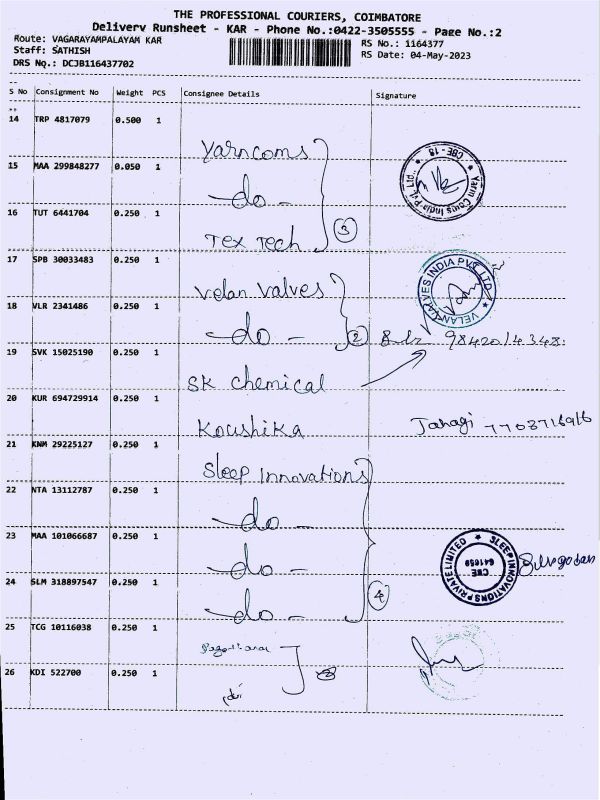 THE PROFESSIONAL COURIERS, COIMBATORE
Delivery Runsheet - KAR - Phone No.:0422-3505555 - Page No.:2
Route: VAGARAYAMPALAYAM KAR
RS No.: 1164377
Staff: SATHISH
RS Date: 04-May-2023
DRS No.: DCJB116437702
S No Consignment No Weight PCS Consignee Details Signature
14 TRP 4817079 0.500 1 Yarncoms
15 MAA 299848277 0.050 1 -do-
CBE - 18 Yarn Coms India Pvt Ltd
16 TUT 6441704 0.250 1 Tex Tech 3
17 SPB 30033483 0.250 1 Velan Valves
VELAN VALVES INDIA PVT LTD
18 VLR 2341486 0.250 1 -do- 2
9842014348
19 SVK 15025190 0.250 1 SK chemical
20 KUR 694729914 0.250 1 Koushika
21 KNM 29225127 0.250 1 Sleep Innovations
22 NTA 13112787 0.250 1 -do-
23 MAA 101066687 0.250 1 -do-
SLEEP INNOVATIONS PRIVATE LIMITED CBE 641659
24 SLM 318897547 0.250 1 -do- 4
25 TCG 10116038 0.250 1
26 KDI 522700 0.250 1